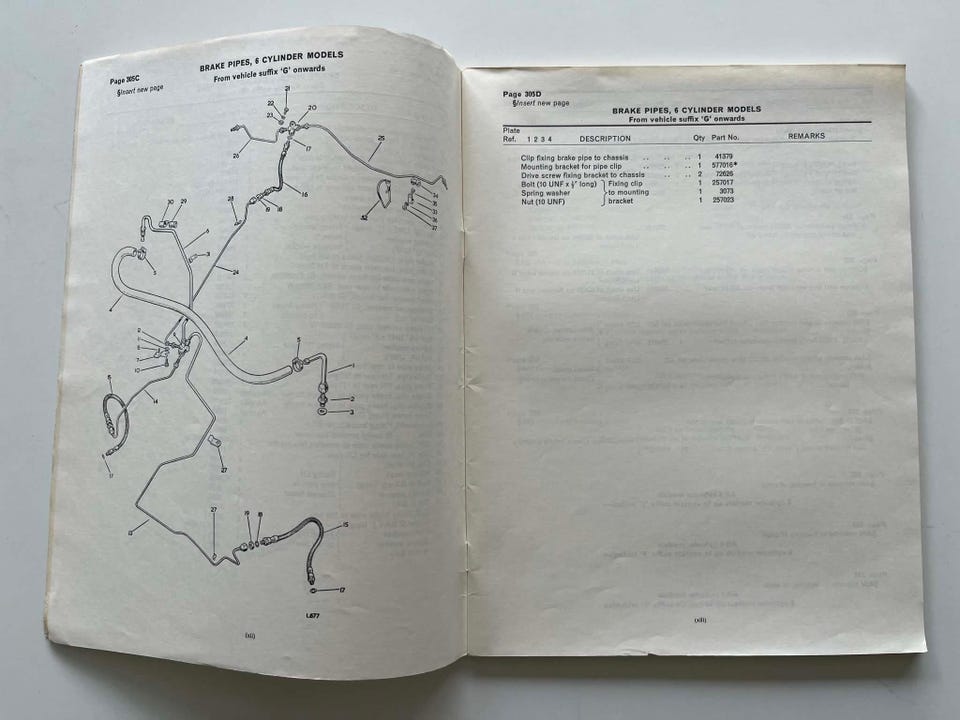 Page 305C
§Insert new page
BRAKE PIPES, 6 CYLINDER MODELS
From vehicle suffix 'G' onwards
21
22
23
20
17
25
26
16
28
19
18
52
34
35
33
36
37
30
29
24
5
3
4
4
5
1
2
3
10
14
27
13
27
19
18
15
17
L677
(xii)
Page 305D
§Insert new page
BRAKE PIPES, 6 CYLINDER MODELS
From vehicle suffix 'G' onwards
Plate
Ref. 1 2 3 4 DESCRIPTION Qty Part No. REMARKS
Clip fixing brake pipe to chassis .. .. .. 1 41379
Mounting bracket for pipe clip .. .. .. 1 577016*
Drive screw fixing bracket to chassis .. .. 2 72626
Bolt (10 UNF x ½" long) } Fixing clip 1 257017
Spring washer } to mounting 1 3073
Nut (10 UNF) } bracket 1 257023
(xiii)